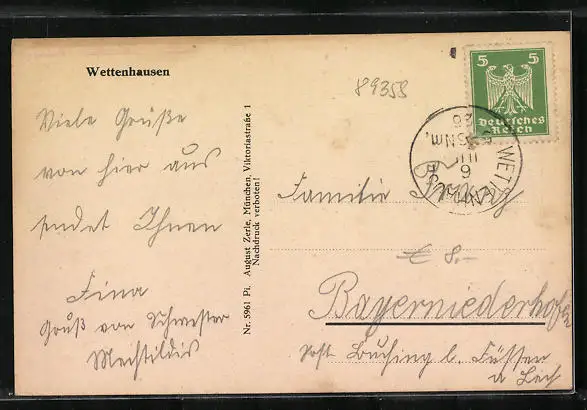 Wettenhausen
89355
Viele Grüße
von hier aus
sendet Ihnen
Fina
Gruß von Schwester
Mechtildis
Nr. 5961 Pi. August Zerle, München, Viktoriastraße 1
Nachdruck verboten!
5 5
Deutsches
Reich
WETTENHAUSEN
6
26
Familie
€ 8.-
Bayerniederhofen
Post Buching b. Füssen
a Lech